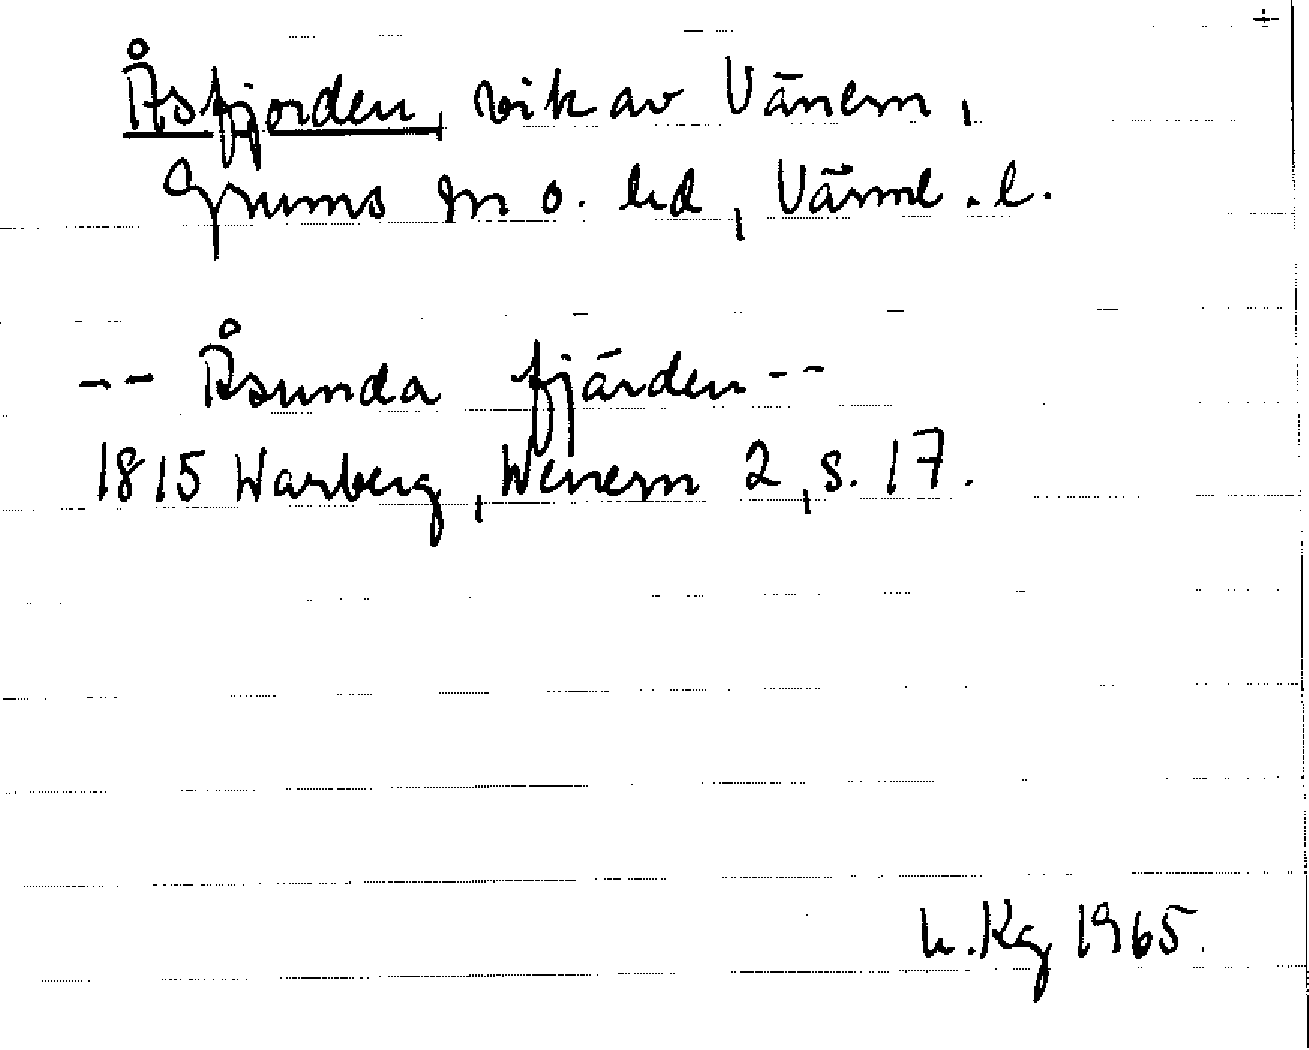 Åsfjorden, vik av Vänern,
Grums sn o. hd, Värml. l.
-- Åsunda fjärden --
1815 Warberg, Wenern 2, s. 17.
L. Kg 1965.